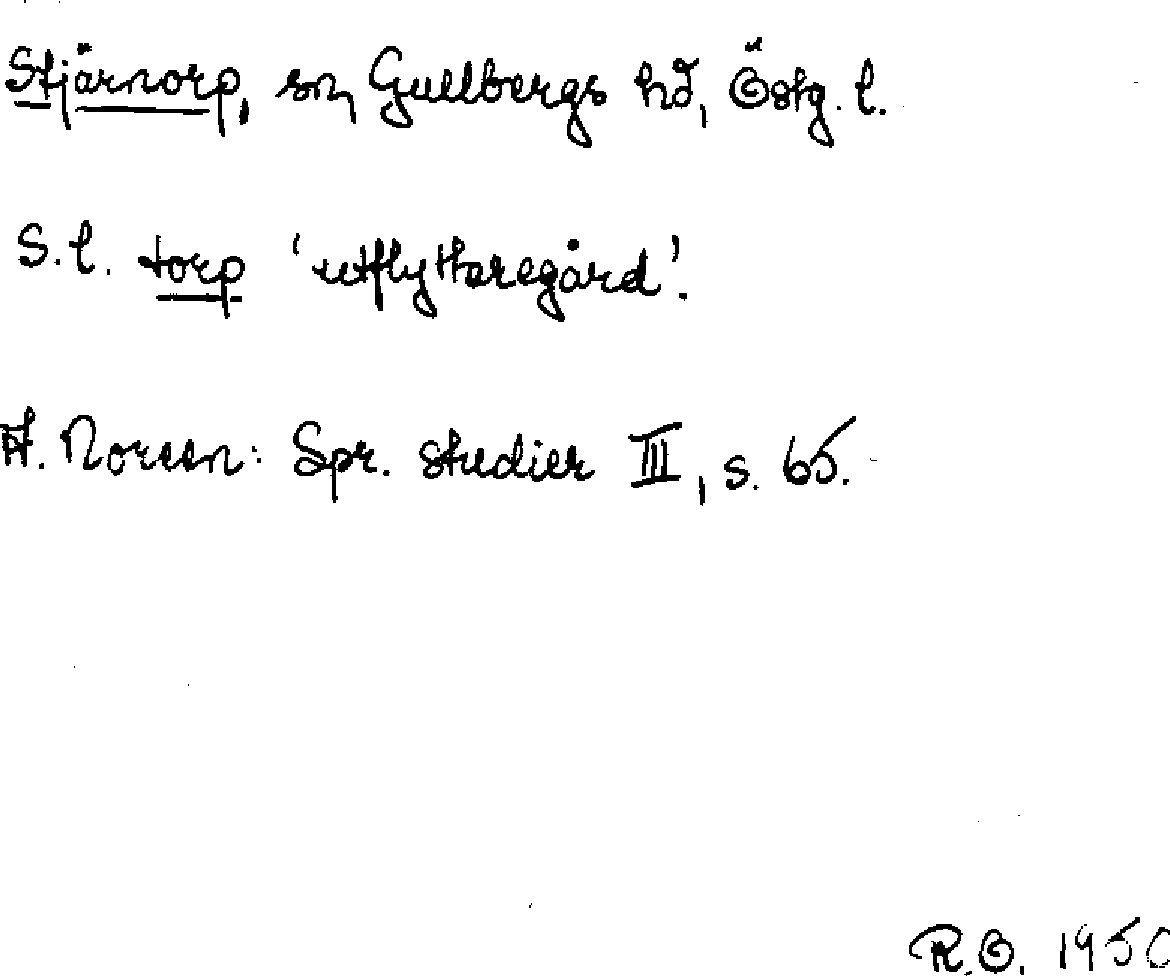 Stjärnorp, sn, Gullbergs hd, Östg. l.
S.l. torp 'utflyttaregård'.
A. Noreen: Spr. studier III, s. 65.
R.O. 1950